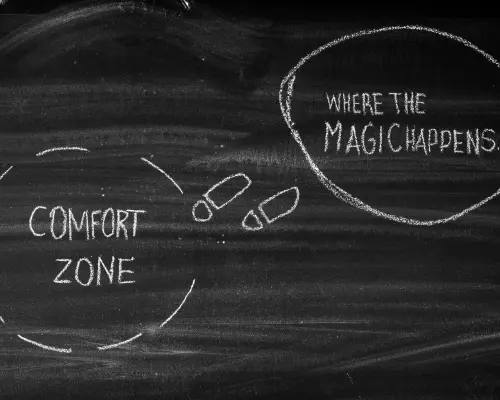 WHERE THE
MAGIC HAPPENS.
COMFORT
ZONE